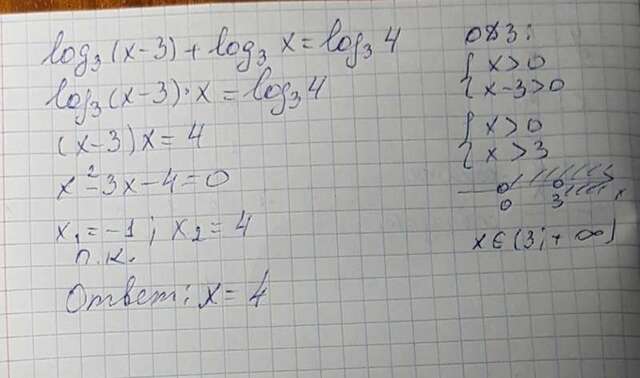 log₃(x-3) + log₃ x = log₃ 4
log₃(x-3)·x = log₃4
(x-3)x = 4
x²-3x-4=0
x₁=-1; x₂=4
п.к.
Ответ: x=4
ОДЗ:
{ x>0
{ x-3>0
{ x>0
{ x>3
0 3 x
x∈(3;+∞)